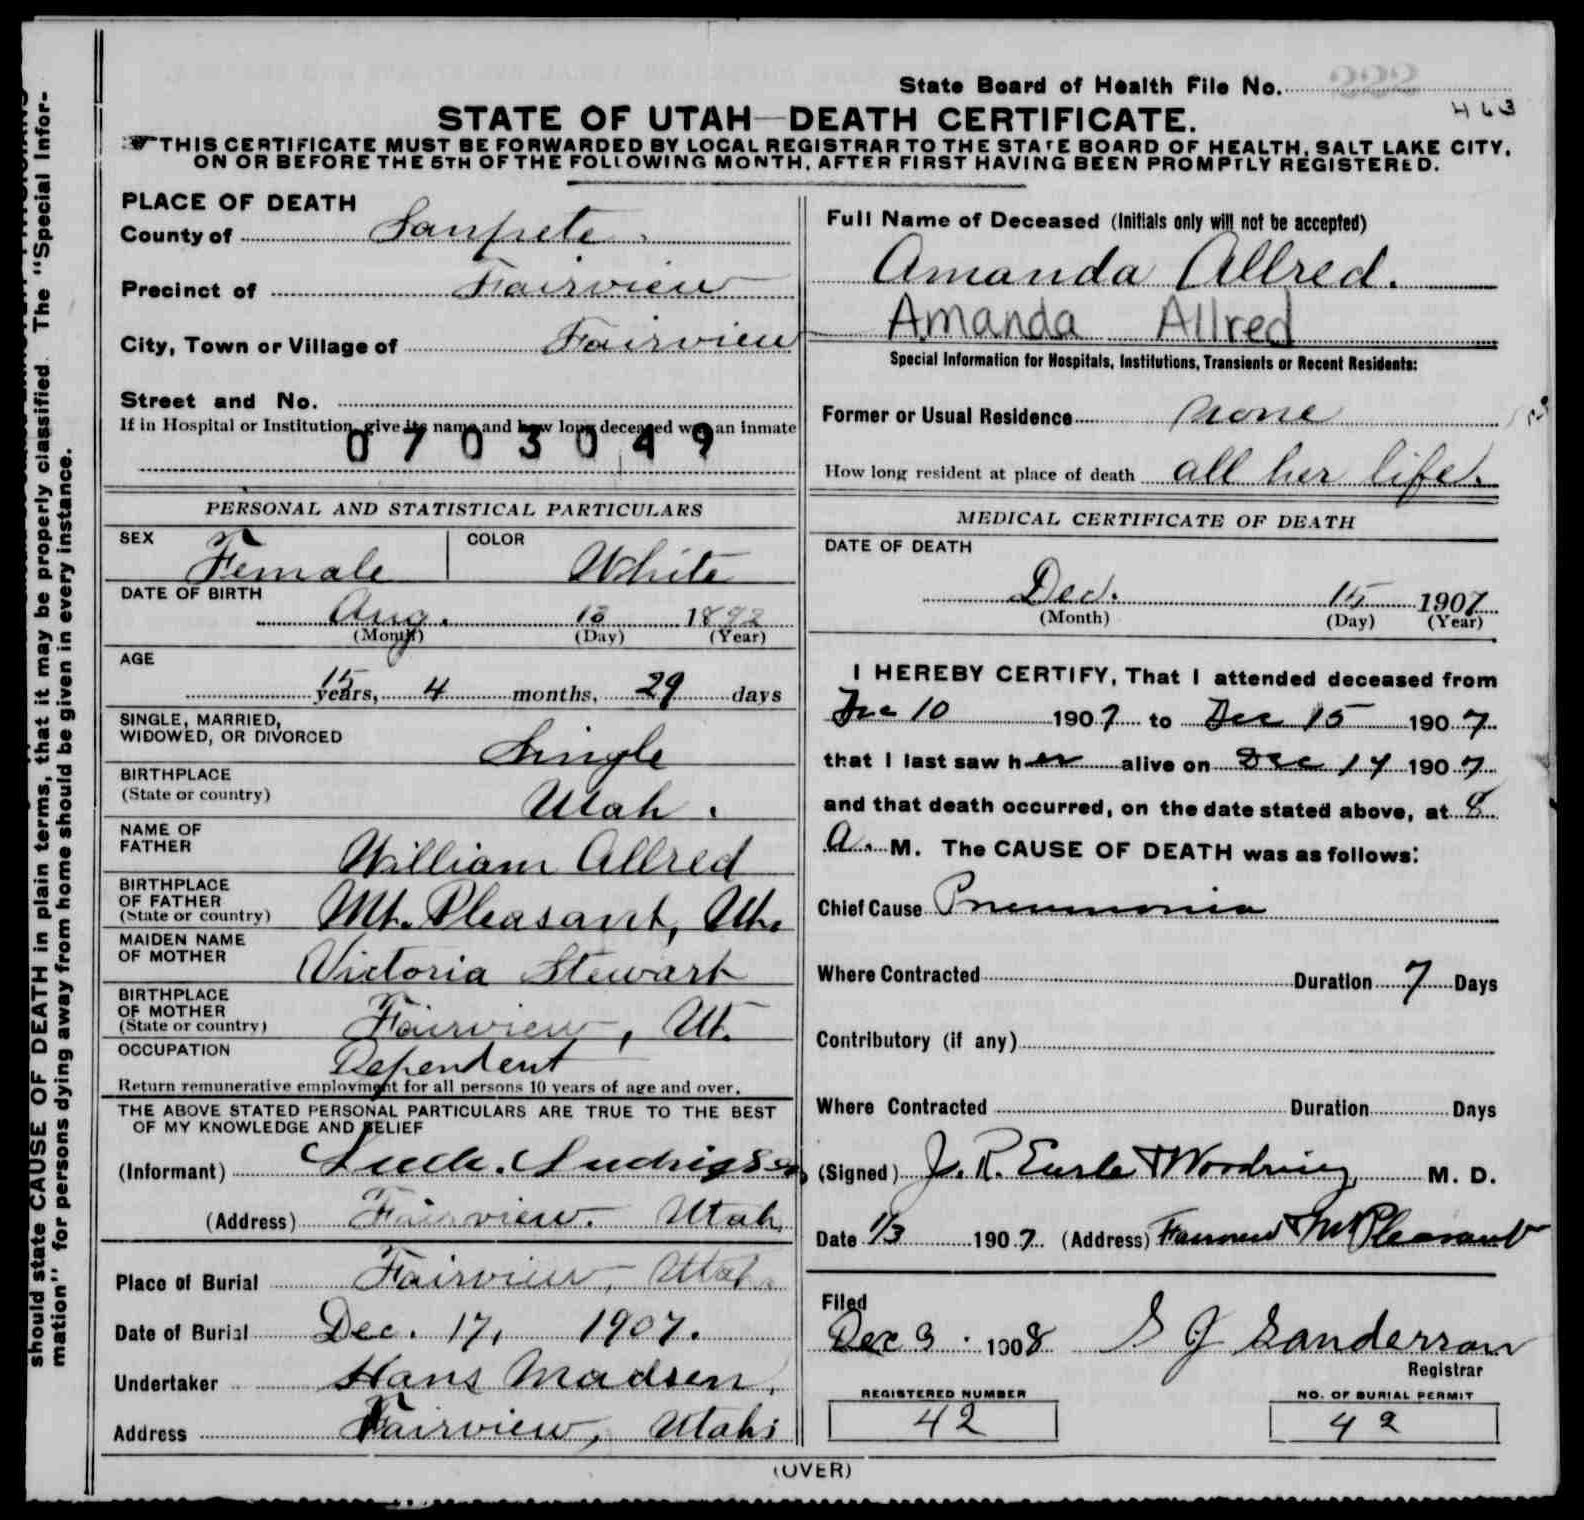 should state CAUSE OF DEATH in plain terms, that it may be properly classified. The "Special Infor-
mation" for persons dying away from home should be given in every instance.
State Board of Health File No.
463
STATE OF UTAH—DEATH CERTIFICATE.
THIS CERTIFICATE MUST BE FORWARDED BY LOCAL REGISTRAR TO THE STATE BOARD OF HEALTH, SALT LAKE CITY,
ON OR BEFORE THE 5TH OF THE FOLLOWING MONTH, AFTER FIRST HAVING BEEN PROMPTLY REGISTERED.
PLACE OF DEATH
County of Sanpete
Precinct of Fairview
City, Town or Village of Fairview
Street and No.
If in Hospital or Institution, give its name and how long deceased was an inmate
0703049
PERSONAL AND STATISTICAL PARTICULARS
SEX Female COLOR White
DATE OF BIRTH
Aug. 18 1892
(Month) (Day) (Year)
AGE
15 years, 4 months, 29 days
SINGLE, MARRIED,
WIDOWED, OR DIVORCED Single
BIRTHPLACE
(State or country) Utah.
NAME OF
FATHER William Allred
BIRTHPLACE
OF FATHER
(State or country) Mt. Pleasant, Ut.
MAIDEN NAME
OF MOTHER Victoria Stewart
BIRTHPLACE
OF MOTHER
(State or country) Fairview, Ut.
OCCUPATION Dependent
Return remunerative employment for all persons 10 years of age and over.
THE ABOVE STATED PERSONAL PARTICULARS ARE TRUE TO THE BEST
OF MY KNOWLEDGE AND BELIEF
(Informant)
(Address) Fairview. Utah.
Place of Burial Fairview, Utah.
Date of Burial Dec. 17, 1907.
Undertaker Hans Madsen,
Address Fairview, Utah;
Full Name of Deceased (Initials only will not be accepted)
Amanda Allred.
Amanda Allred
Special Information for Hospitals, Institutions, Transients or Recent Residents:
Former or Usual Residence none
How long resident at place of death all her life.
MEDICAL CERTIFICATE OF DEATH
DATE OF DEATH
Dec. 15 1907
(Month) (Day) (Year)
I HEREBY CERTIFY, That I attended deceased from
Dec 10 1907 to Dec 15 1907
that I last saw her alive on Dec 14 1907
and that death occurred, on the date stated above, at 8
A. M. The CAUSE OF DEATH was as follows:
Chief Cause Pneumonia
Where Contracted Duration 7 Days
Contributory (if any)
Where Contracted Duration Days
(Signed) J. R. Earle & Woodring M. D.
Date 1/3 1907 (Address) Fairview & Mt Pleasant
Filed
Dec 3. 1908 S J Sanderson
Registrar
REGISTERED NUMBER
42
NO. OF BURIAL PERMIT
42
(OVER)